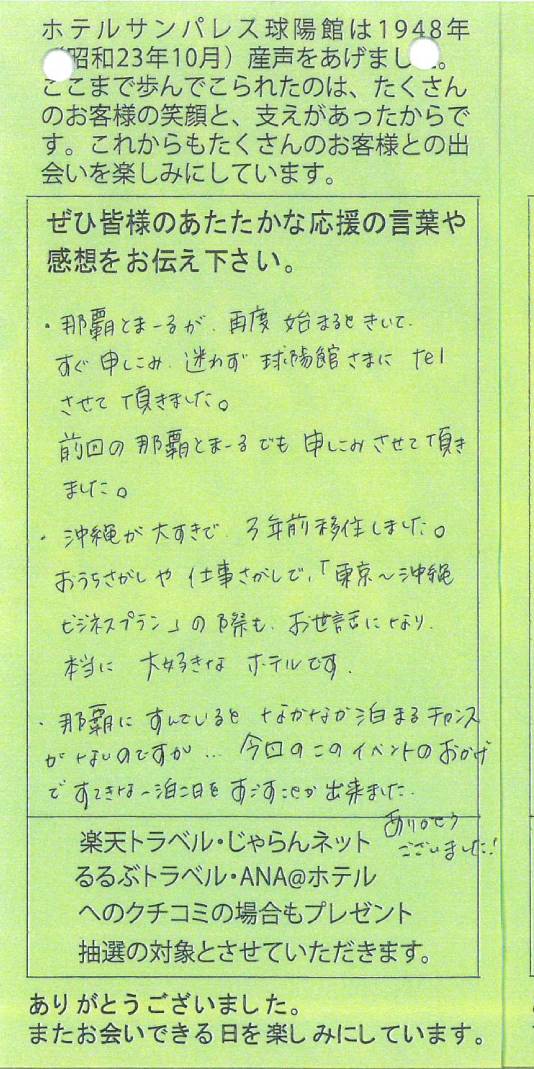 ホテルサンパレス球陽館は1948年
(昭和23年10月)産声をあげました。
ここまで歩んでこられたのは、たくさん
のお客様の笑顔と、支えがあったからで
す。これからもたくさんのお客様との出
会いを楽しみにしています。
ぜひ皆様のあたたかな応援の言葉や
感想をお伝え下さい。
・那覇とまーるが、再度 始まるときいて、
すぐ申しこみ、迷わず 球陽館さまに tel
させて頂きました。
前回の那覇とまーるでも 申しこみさせて頂き
ました。
・沖縄が大すきで、3年前移住しました。
おうちさがしや 仕事さがしで、「東京〜沖縄
ビジネスプラン」の際も、お世話になり、
本当に 大好きな ホテルです。
・那覇に すんでいると なかなか泊まるチャンス
がないのですが… 今回のこのイベントのおかげ
で すてきな一泊二日を すごすことが出来ました。
ありがとう
ございました!
楽天トラベル・じゃらんネット
るるぶトラベル・ANA@ホテル
へのクチコミの場合もプレゼント
抽選の対象とさせていただきます。
ありがとうございました。
またお会いできる日を楽しみにしています。